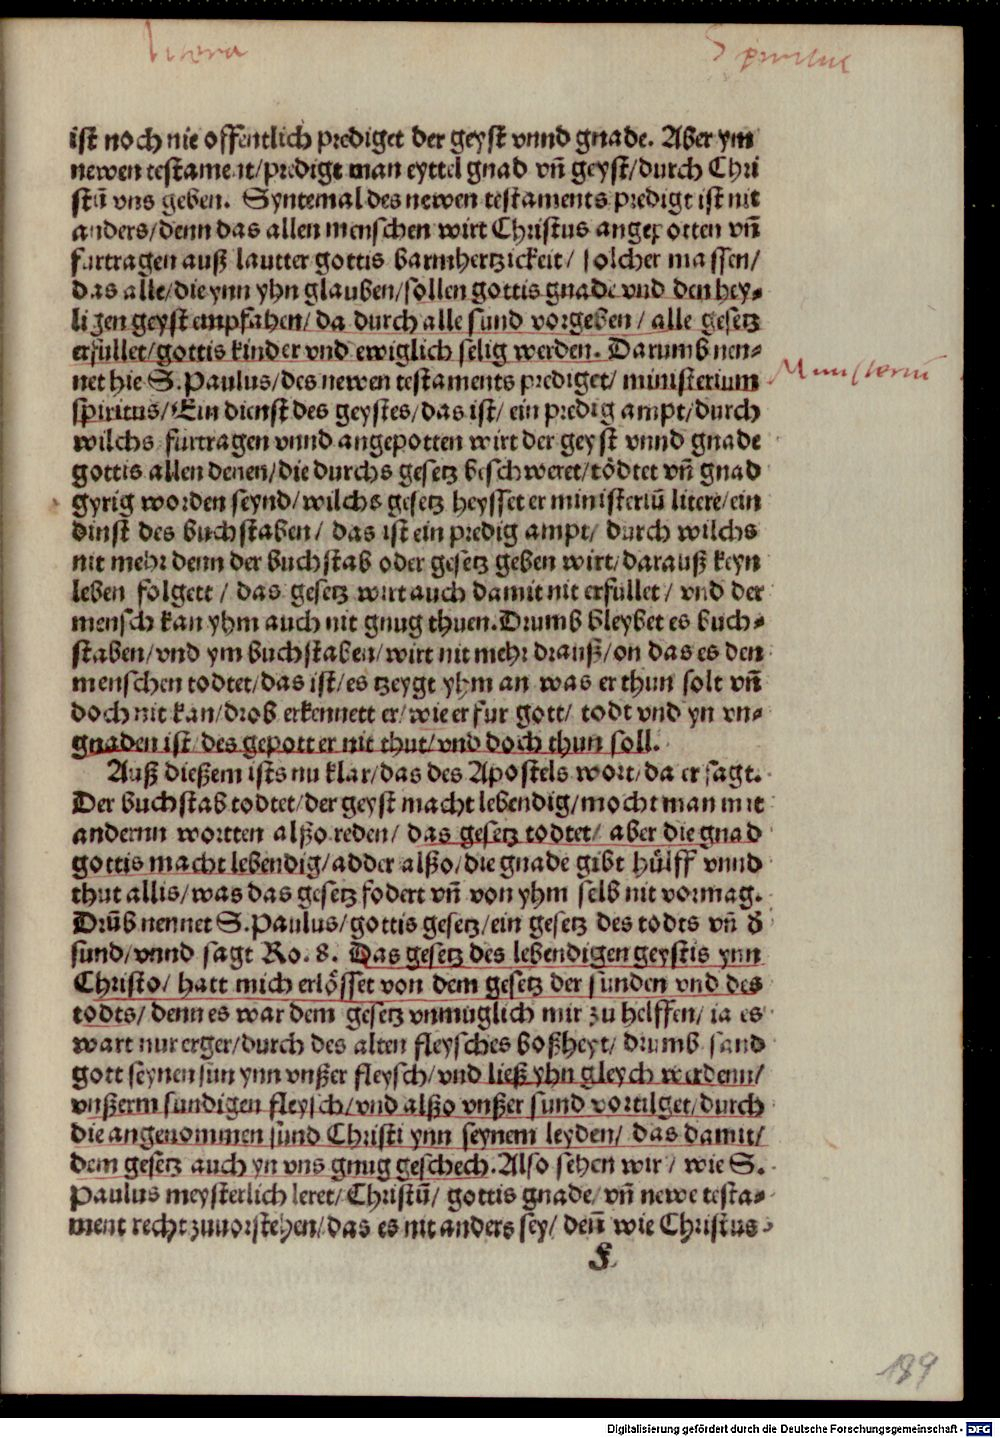 litera Spiritus
ist noch nie offentlich prediget der geyst vnnd gnade. Aber ym
newen testament/predigt man eyttel gnad vn̄ geyst/durch Chri
stū vns geben. Syntemal des newen testaments predigt ist nit
anders/denn das allen menschen wirt Christus angepotten vn̄
furtragen auß lautter gottis barmhertzickeit/ solcher massen/
das alle/die ynn yhn glauben/sollen gottis gnade vnd den hey⸗
ligen geyst empfahen/ da durch alle sund vorgeben/ alle gesetz
erfullet/gottis kinder vnd ewiglich selig werden. Darumb nen⸗
net hie S. Paulus/des newen testaments prediget/ ministerium
Ministeriū
spiritus/ Ein dienst des geystes/das ist/ ein predig ampt/durch
wilchs furtragen vnnd angepotten wirt der geyst vnnd gnade
gottis allen denen/die durchs gesetz beschweret/tödtet vn̄ gnad
gyrig worden seynd/wilchs gesetz heysset er ministeriū litere/ein
dinst des buchstaben/ das ist ein predig ampt/ durch wilchs
nit mehr denn der buchstab oder gesetz geben wirt/darauß keyn
leben folgett/ das gesetz wirt auch damit nit erfullet/ vnd der
mensch kan yhm auch nit gnug thuen. Drumb bleybet es buch⸗
staben/vnd ym buchstaben/wirt nit mehr drauß/on das es den
menschen todtet/das ist/es tzeygt yhm an was er thun solt vn̄
doch nit kan/drob erkennett er/wie er fur gott/ todt vnd yn vn⸗
gnaden ist/des gepott er nit thut/vnd doch thun soll.
Auß dießem ists nu klar/das des Apostels wort/da er sagt.
Der buchstab todtet/der geyst macht lebendig/mocht man mit
andernn wortten alßo reden/ das gesetz todtet/ aber die gnad
gottis macht lebendig/adder alßo/die gnade gibt hülff vnnd
thut allis/was das gesetz fodert vn̄ von yhm selb nit vormag.
Drūb nennet S. Paulus/gottis gesetz/ein gesetz des todts vn̄ d̄
sund/vnnd sagt Ro. 8. Das gesetz des lebendigen geystis ynn
Christo/ hatt mich erlösset von dem gesetz der sunden vnd des
todts/ denn es war dem gesetz vnmuglich mir zu helffen/ ia es
wart nur erger/durch des alten fleysches boßheyt/ drumb sand
gott seynen sun ynn vnßer fleysch/vnd ließ yhn gleych werdenn/
vnßerm sundigen fleysch/vnd alßo vnßer sund vortilget/durch
die angenommen sund Christi ynn seynem leyden/ das damit/
dem gesetz auch yn vns gnug geschech. Also sehen wir/ wie S.
Paulus meysterlich leret/Christū/ gottis gnade/vn̄ newe testa⸗
ment recht zuuorstehen/das es nit anders sey/ den̄ wie Christus
F
189
Digitalisierung gefördert durch die Deutsche Forschungsgemeinschaft - DFG